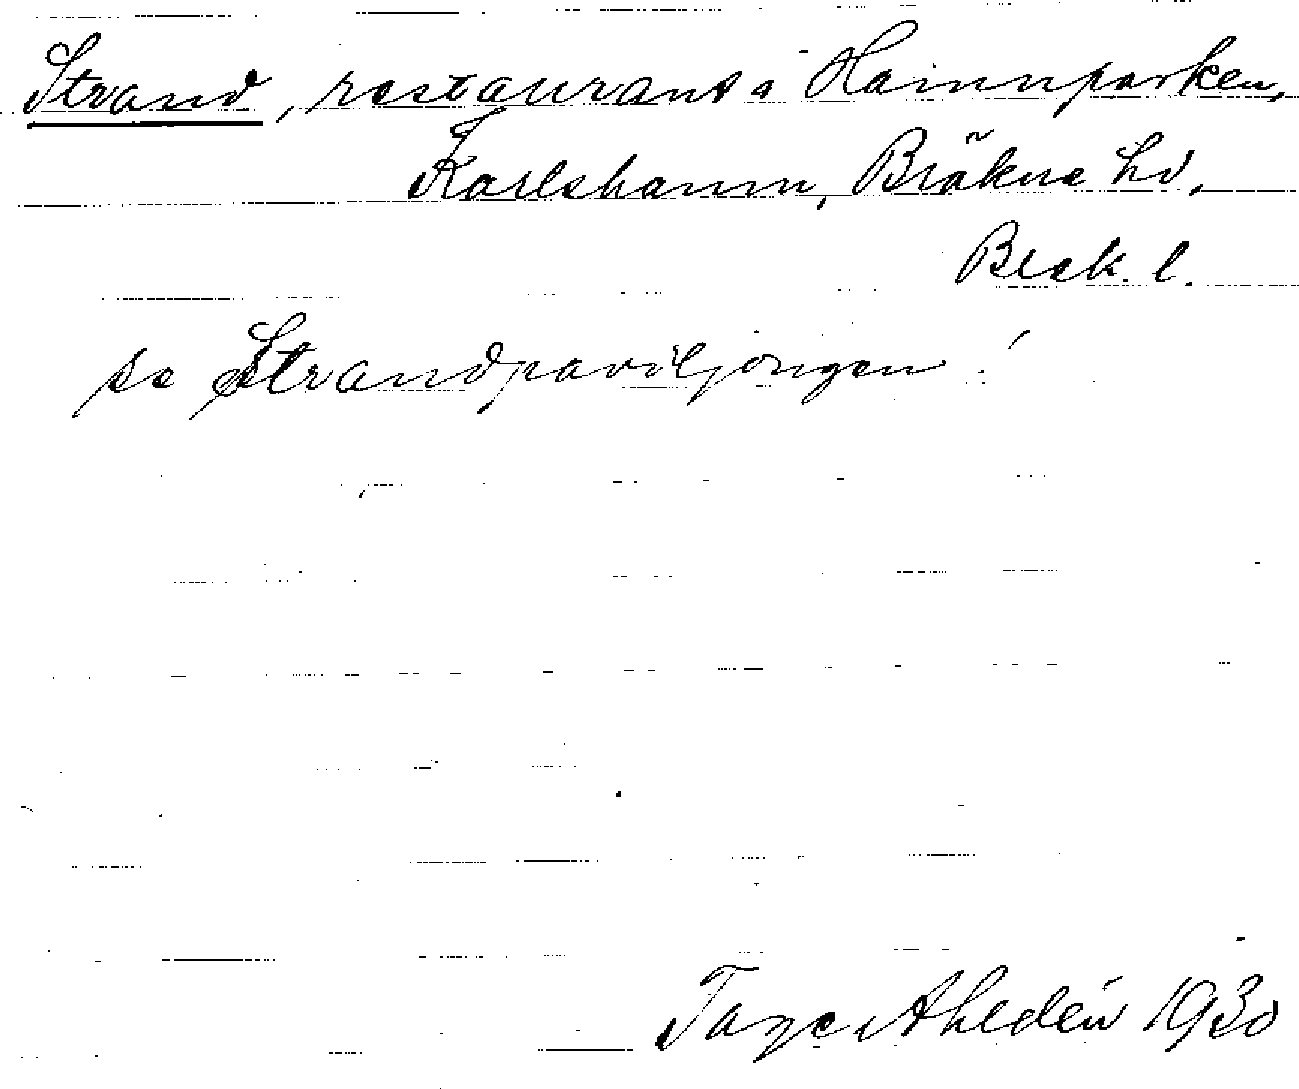 Strand, restaurant i Hamnparken,
Karlshamn, Bräkne hd,
Blek. l.
se Strandpaviljongen!
Tage Ahldén 1930